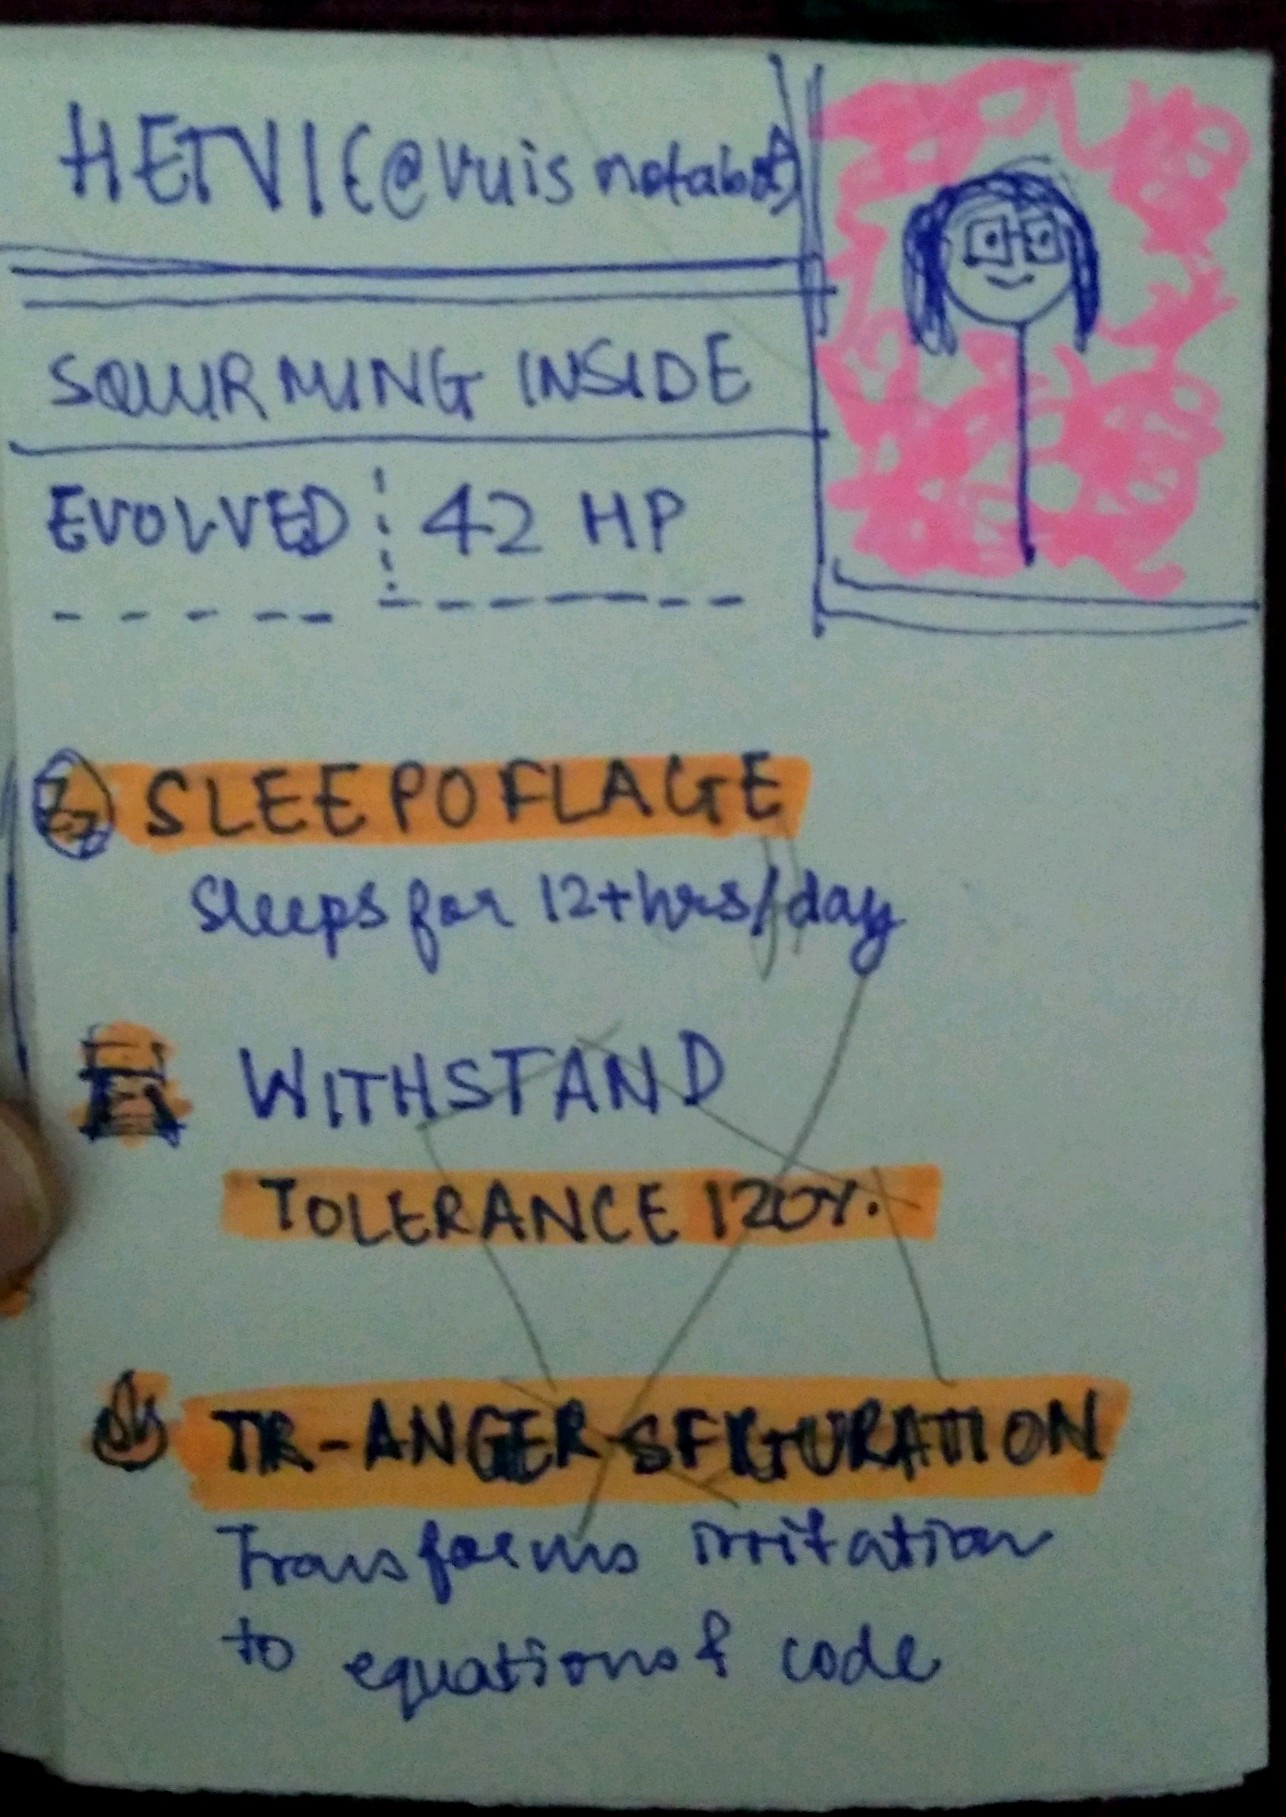 HETVI (@vuisnotabot)
SQUIRMING INSIDE
EVOLVED 42 HP
Zz SLEEPOFLAGE
Sleeps for 12+hrs/day
WITHSTAND
TOLERANCE 120%.
TR-ANGER-SFIGURATION
Transforms irritation
to equations & code